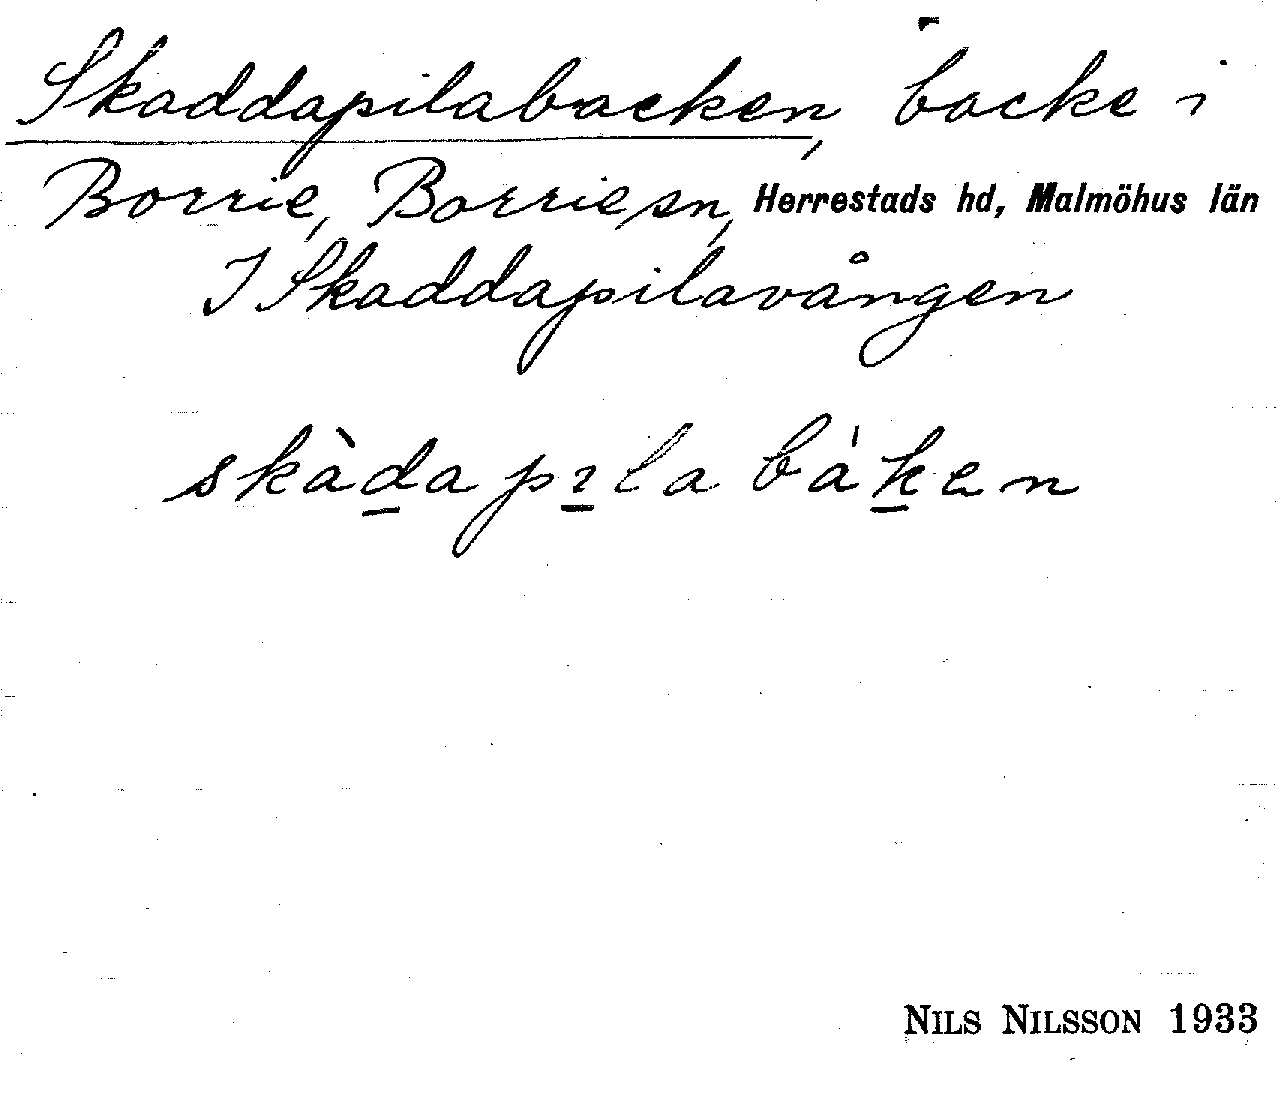 Skaddapilabacken, backe i
Borrie, Borrie sn, Herrestads hd, Malmöhus län
I Skaddapilavången
skàd̲a pı̲la bák̲en
NILS NILSSON 1933